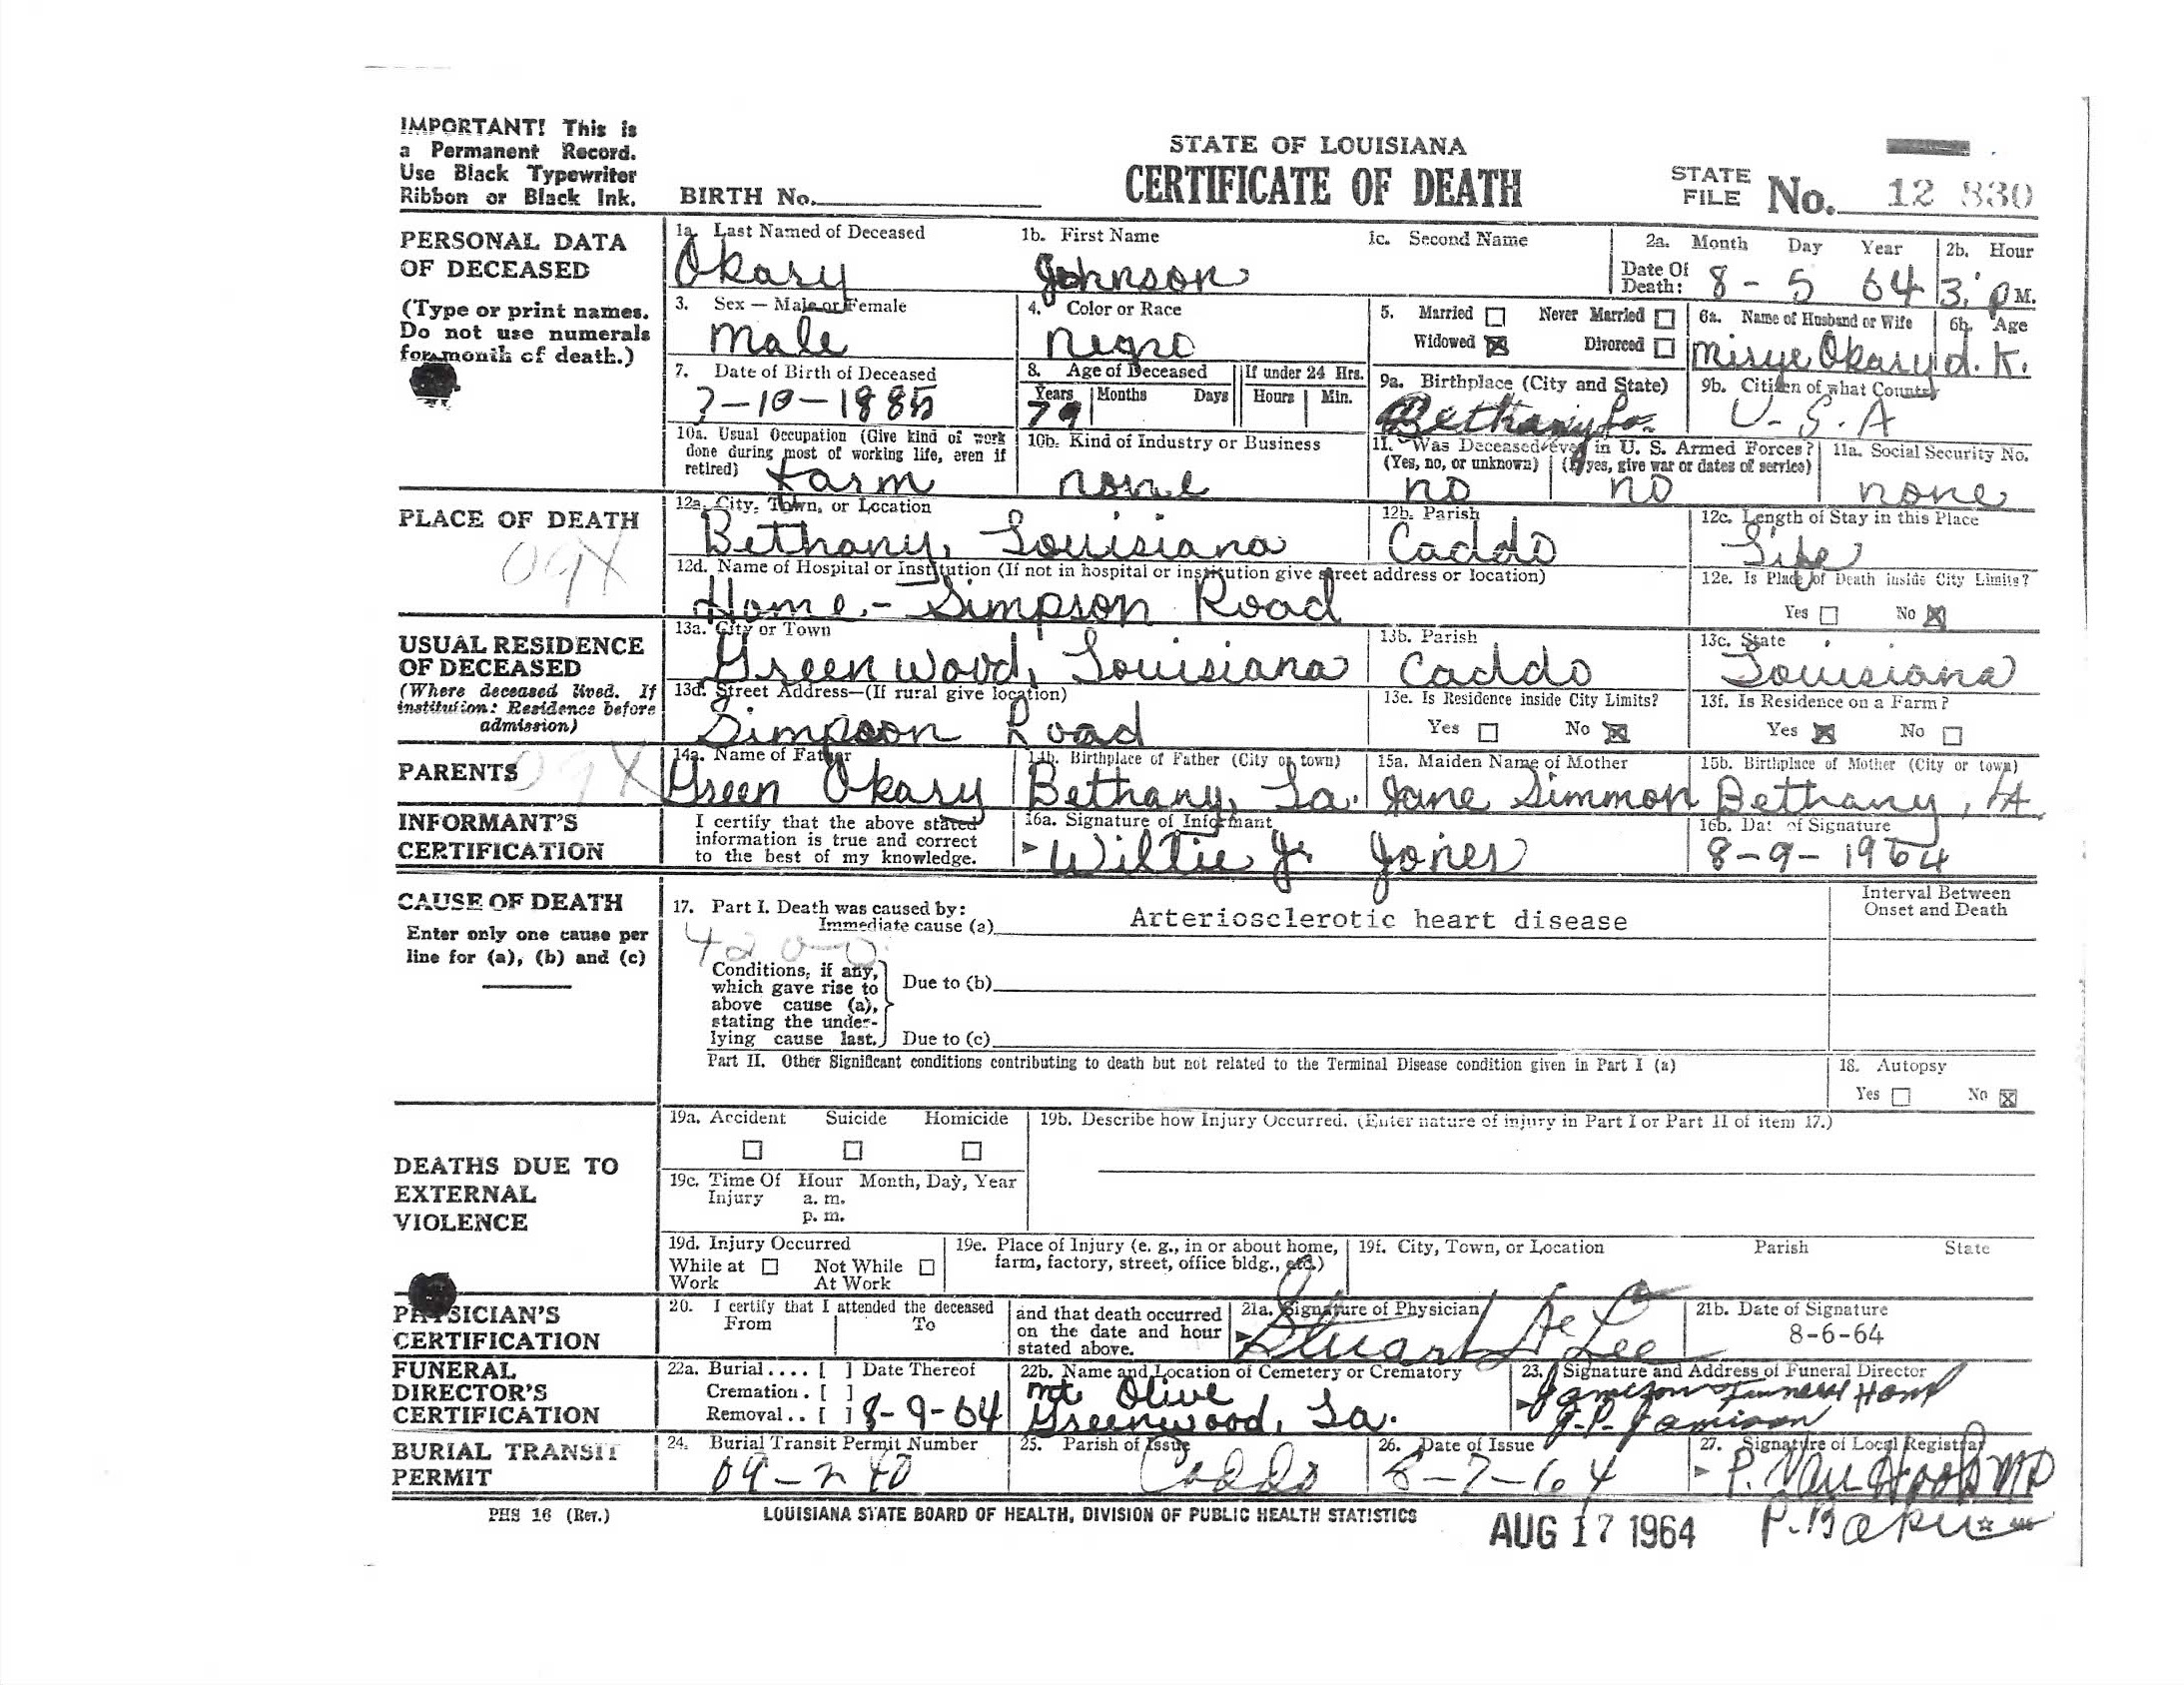 IMPORTANT! This is
a Permanent Record.
Use Black Typewriter
Ribbon or Black Ink.
BIRTH No.
STATE OF LOUISIANA
CERTIFICATE OF DEATH
STATE FILE No. 12 830
PERSONAL DATA
OF DECEASED
(Type or print names.
Do not use numerals
for month of death.)
1a. Last Named of Deceased 1b. First Name 1c. Second Name 2a. Month Day Year 2b. Hour
Okary Johnson Date Of Death: 8 - 5 64 3: PM.
3. Sex — Male or Female 4. Color or Race 5. Married Never Married 6a. Name of Husband or Wife 6b. Age
Male Negro Widowed Divorced Okary d. K.
7. Date of Birth of Deceased 8. Age of Deceased If under 24 Hrs. 9a. Birthplace (City and State) 9b. Citizen of what Country
Years Months Days Hours Min.
?-10-1885 79 Bethany La. U-S.A
10a. Usual Occupation (Give kind of work
done during most of working life, even if
retired) Farm
10b. Kind of Industry or Business
none
11. Was Deceased ever in U. S. Armed Forces?
(Yes, no, or unknown) (If yes, give war or dates of service)
no no
11a. Social Security No.
none
PLACE OF DEATH
09X
12a. City, Town, or Location 12b. Parish 12c. Length of Stay in this Place
Bethany, Louisiana Caddo Life
12d. Name of Hospital or Institution (If not in hospital or institution give street address or location) 12e. Is Place of Death inside City Limits?
Home - Simpson Road Yes No
USUAL RESIDENCE
OF DECEASED
(Where deceased lived. If
institution: Residence before
admission)
13a. City or Town 13b. Parish 13c. State
Greenwood, Louisiana Caddo Louisiana
13d. Street Address—(If rural give location) 13e. Is Residence inside City Limits? 13f. Is Residence on a Farm?
Simpson Road Yes No Yes No
PARENTS 09X
14a. Name of Father 14b. Birthplace of Father (City or town) 15a. Maiden Name of Mother 15b. Birthplace of Mother (City or town)
Green Okary Bethany, La. Jane Simmon Bethany, LA.
INFORMANT'S
CERTIFICATION
I certify that the above stated
information is true and correct
to the best of my knowledge.
16a. Signature of Informant 16b. Date of Signature
Willie Jr Jones 8-9-1964
CAUSE OF DEATH
Enter only one cause per
line for (a), (b) and (c)
17. Part I. Death was caused by:
Immediate cause (a) Arteriosclerotic heart disease
Interval Between
Onset and Death
420-0
Conditions, if any,
which gave rise to
above cause (a),
stating the under-
lying cause last.
Due to (b)
Due to (c)
Part II. Other Significant conditions contributing to death but not related to the Terminal Disease condition given in Part I (a)
18. Autopsy
Yes No
DEATHS DUE TO
EXTERNAL
VIOLENCE
19a. Accident Suicide Homicide
19b. Describe how Injury Occurred. (Enter nature of injury in Part I or Part II of item 17.)
19c. Time Of Hour Month, Day, Year
Injury a. m.
p. m.
19d. Injury Occurred
While at Not While
Work At Work
19e. Place of Injury (e. g., in or about home,
farm, factory, street, office bldg., etc.)
19f. City, Town, or Location Parish State
PHYSICIAN'S
CERTIFICATION
20. I certify that I attended the deceased
From To
and that death occurred
on the date and hour
stated above.
21a. Signature of Physician
Stuart De Lee
21b. Date of Signature
8-6-64
FUNERAL
DIRECTOR'S
CERTIFICATION
22a. Burial .... [ ] Date Thereof
Cremation . [ ]
Removal .. [ ] 8-9-64
22b. Name and Location of Cemetery or Crematory
Mt Olive
Greenwood, La.
23. Signature and Address of Funeral Director
Jamison Funeral Home
J.P. Jamison
BURIAL TRANSIT
PERMIT
24. Burial Transit Permit Number 25. Parish of Issue 26. Date of Issue 27. Signature of Local Registrar
09-240 Caddo 8-7-64
PHS 16 (Rev.)
LOUISIANA STATE BOARD OF HEALTH, DIVISION OF PUBLIC HEALTH STATISTICS
AUG 17 1964